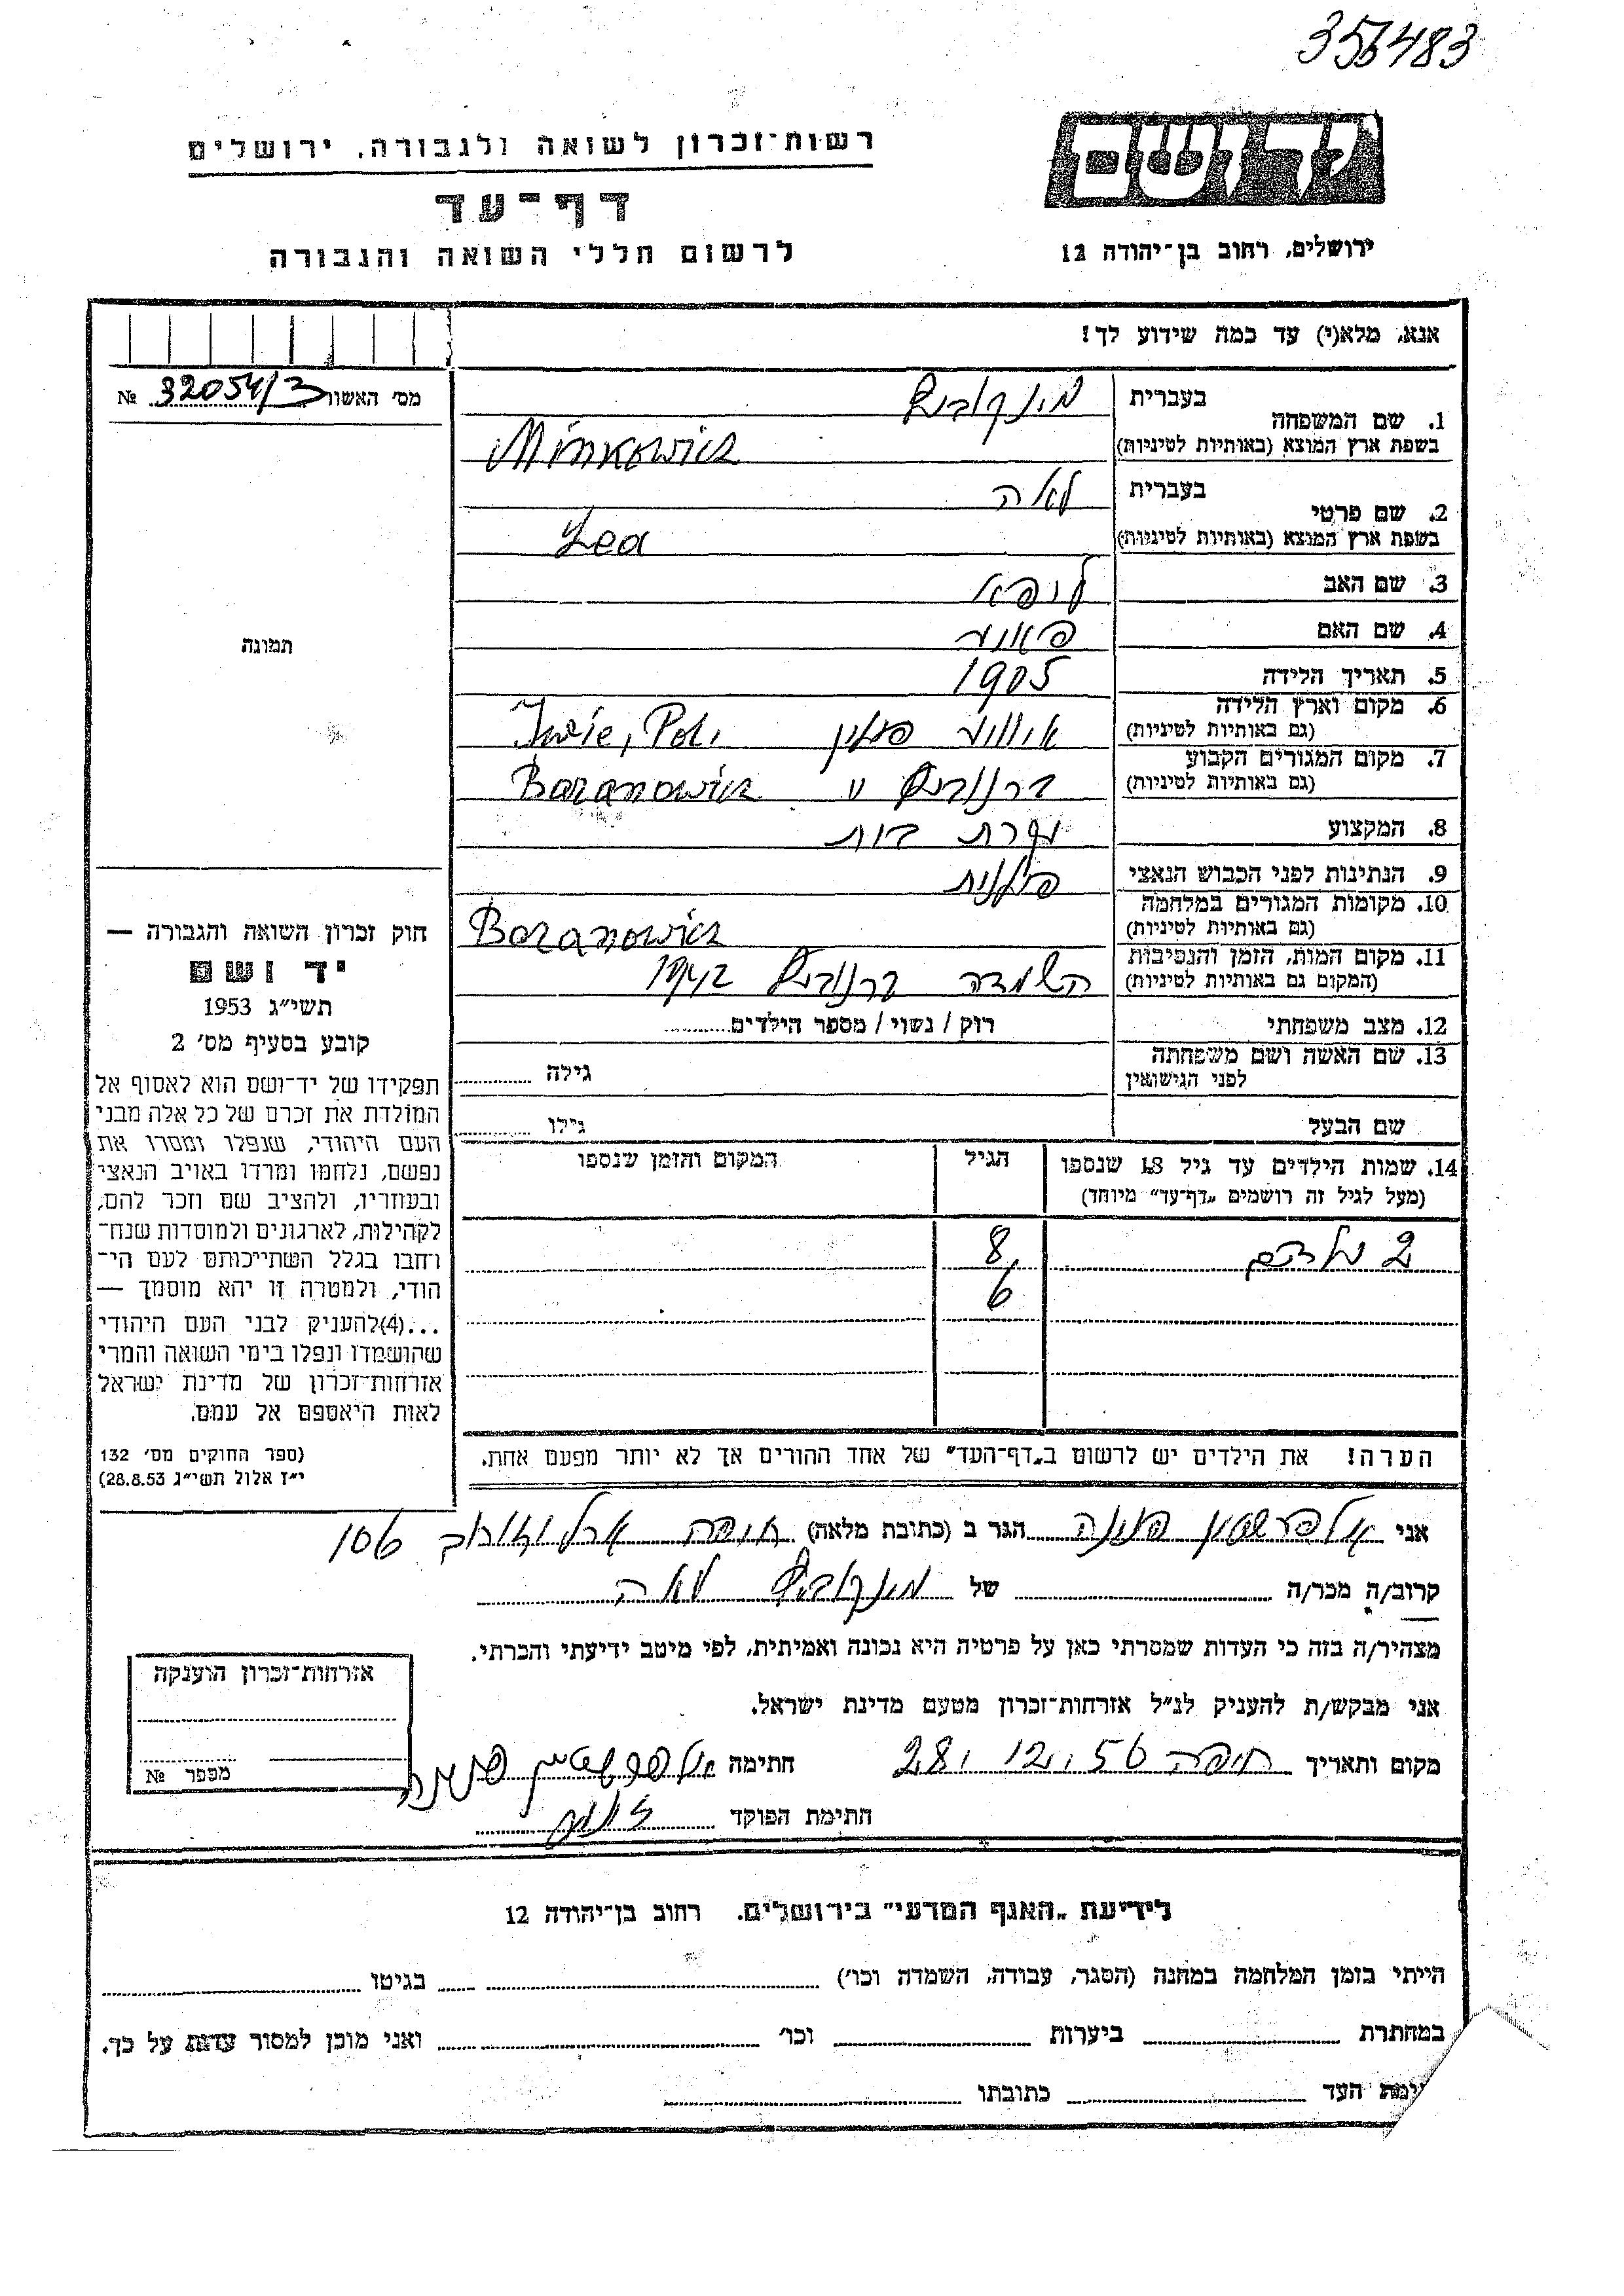 356483
יד ושם
רשות־זכרון לשואה ולגבורה, ירושלים
דף־עד
לרשום חללי השואה והגבורה
ירושלים, רחוב בן־יהודה 12
אנא, מלא(י) עד כמה שידוע לך!
מס׳ האשור 32054/3 №
1. שם המשפחה בעברית מינקוביץ
בשפת ארץ המוצא (באותיות לטיניות) Minkowicz
2. שם פרטי בעברית לאה
בשפת ארץ המוצא (באותיות לטיניות) Lea
3. שם האב ליפא
4. שם האם
5. תאריך הלידה 1905
6. מקום וארץ הלידה פולין Iwie, Pol.
(גם באותיות לטיניות)
7. מקום המגורים הקבוע ברנוביץ Baranowicz
(גם באותיות לטיניות)
8. המקצוע עקרת בית
9. הנתינות לפני הכבוש הנאצי פולנית
10. מקומות המגורים במלחמה Baranowicz
(גם באותיות לטיניות)
11. מקום המות, הזמן והנסיבות השמדה ברנוביץ 1942
(המקום גם באותיות לטיניות)
12. מצב משפחתי רוק / נשוי / מספר הילדים
13. שם האשה ושם משפחתה גילה
לפני הנישואין
שם הבעל גילו
14. שמות הילדים עד גיל 18 שנספו הגיל המקום והזמן שנספו
(מעל לגיל זה רושמים „דף־עד” מיוחד)
2 ילדים 8,
6
הערה! את הילדים יש לרשום ב„דף־העד” של אחד ההורים אך לא יותר מפעם אחת.
תמונה
חוק זכרון השואה והגבורה —
יד ושם
תשי״ג 1953
קובע בסעיף מס׳ 2
תפקידו של יד־ושם הוא לאסוף אל
המולדת את זכרם של כל אלה מבני
העם היהודי, שנפלו ומסרו את
נפשם, נלחמו ומרדו באויב הנאצי
ובעוזריו, ולהציב שם וזכר להם,
לקהילות, לארגונים ולמוסדות שנח־
רחבו בגלל השתייכותם לעם הי־
הודי, ולמטרה זו יהא מוסמך —
...(4)להעניק לבני העם היהודי
שהושמדו ונפלו בימי השואה והמרי
אזרחות־זכרון של מדינת ישראל
לאות היאספם אל עמם.
(ספר החוקים מס׳ 132
י״ז אלול תשי״ג 28.8.53)
אני אלפרשטין פנינה הגר ב (כתובת מלאה) חיפה ארלוזורוב 106
קרוב/ה מכר/ה של מינקוביץ לאה
מצהיר/ה בזה כי העדות שמסרתי כאן על פרטיה היא נכונה ואמיתית, לפי מיטב ידיעתי והכרתי.
אני מבקש/ת להעניק לנ״ל אזרחות־זכרון מטעם מדינת ישראל.
מקום ותאריך חיפה 28.12.56 חתימה אלפרשטין פנינה
חתימת הפוקד
אזרחות־זכרון הוענקה
מספר №
לידיעת „האגף המדעי” בירושלים. רחוב בן־יהודה 12
הייתי בזמן המלחמה במחנה (הסגר, עבודה, השמדה וכו׳) בגיטו
במחתרת ביערות וכו׳ ואני מוכן למסור עדות על כך.
ימת העד כתובתו